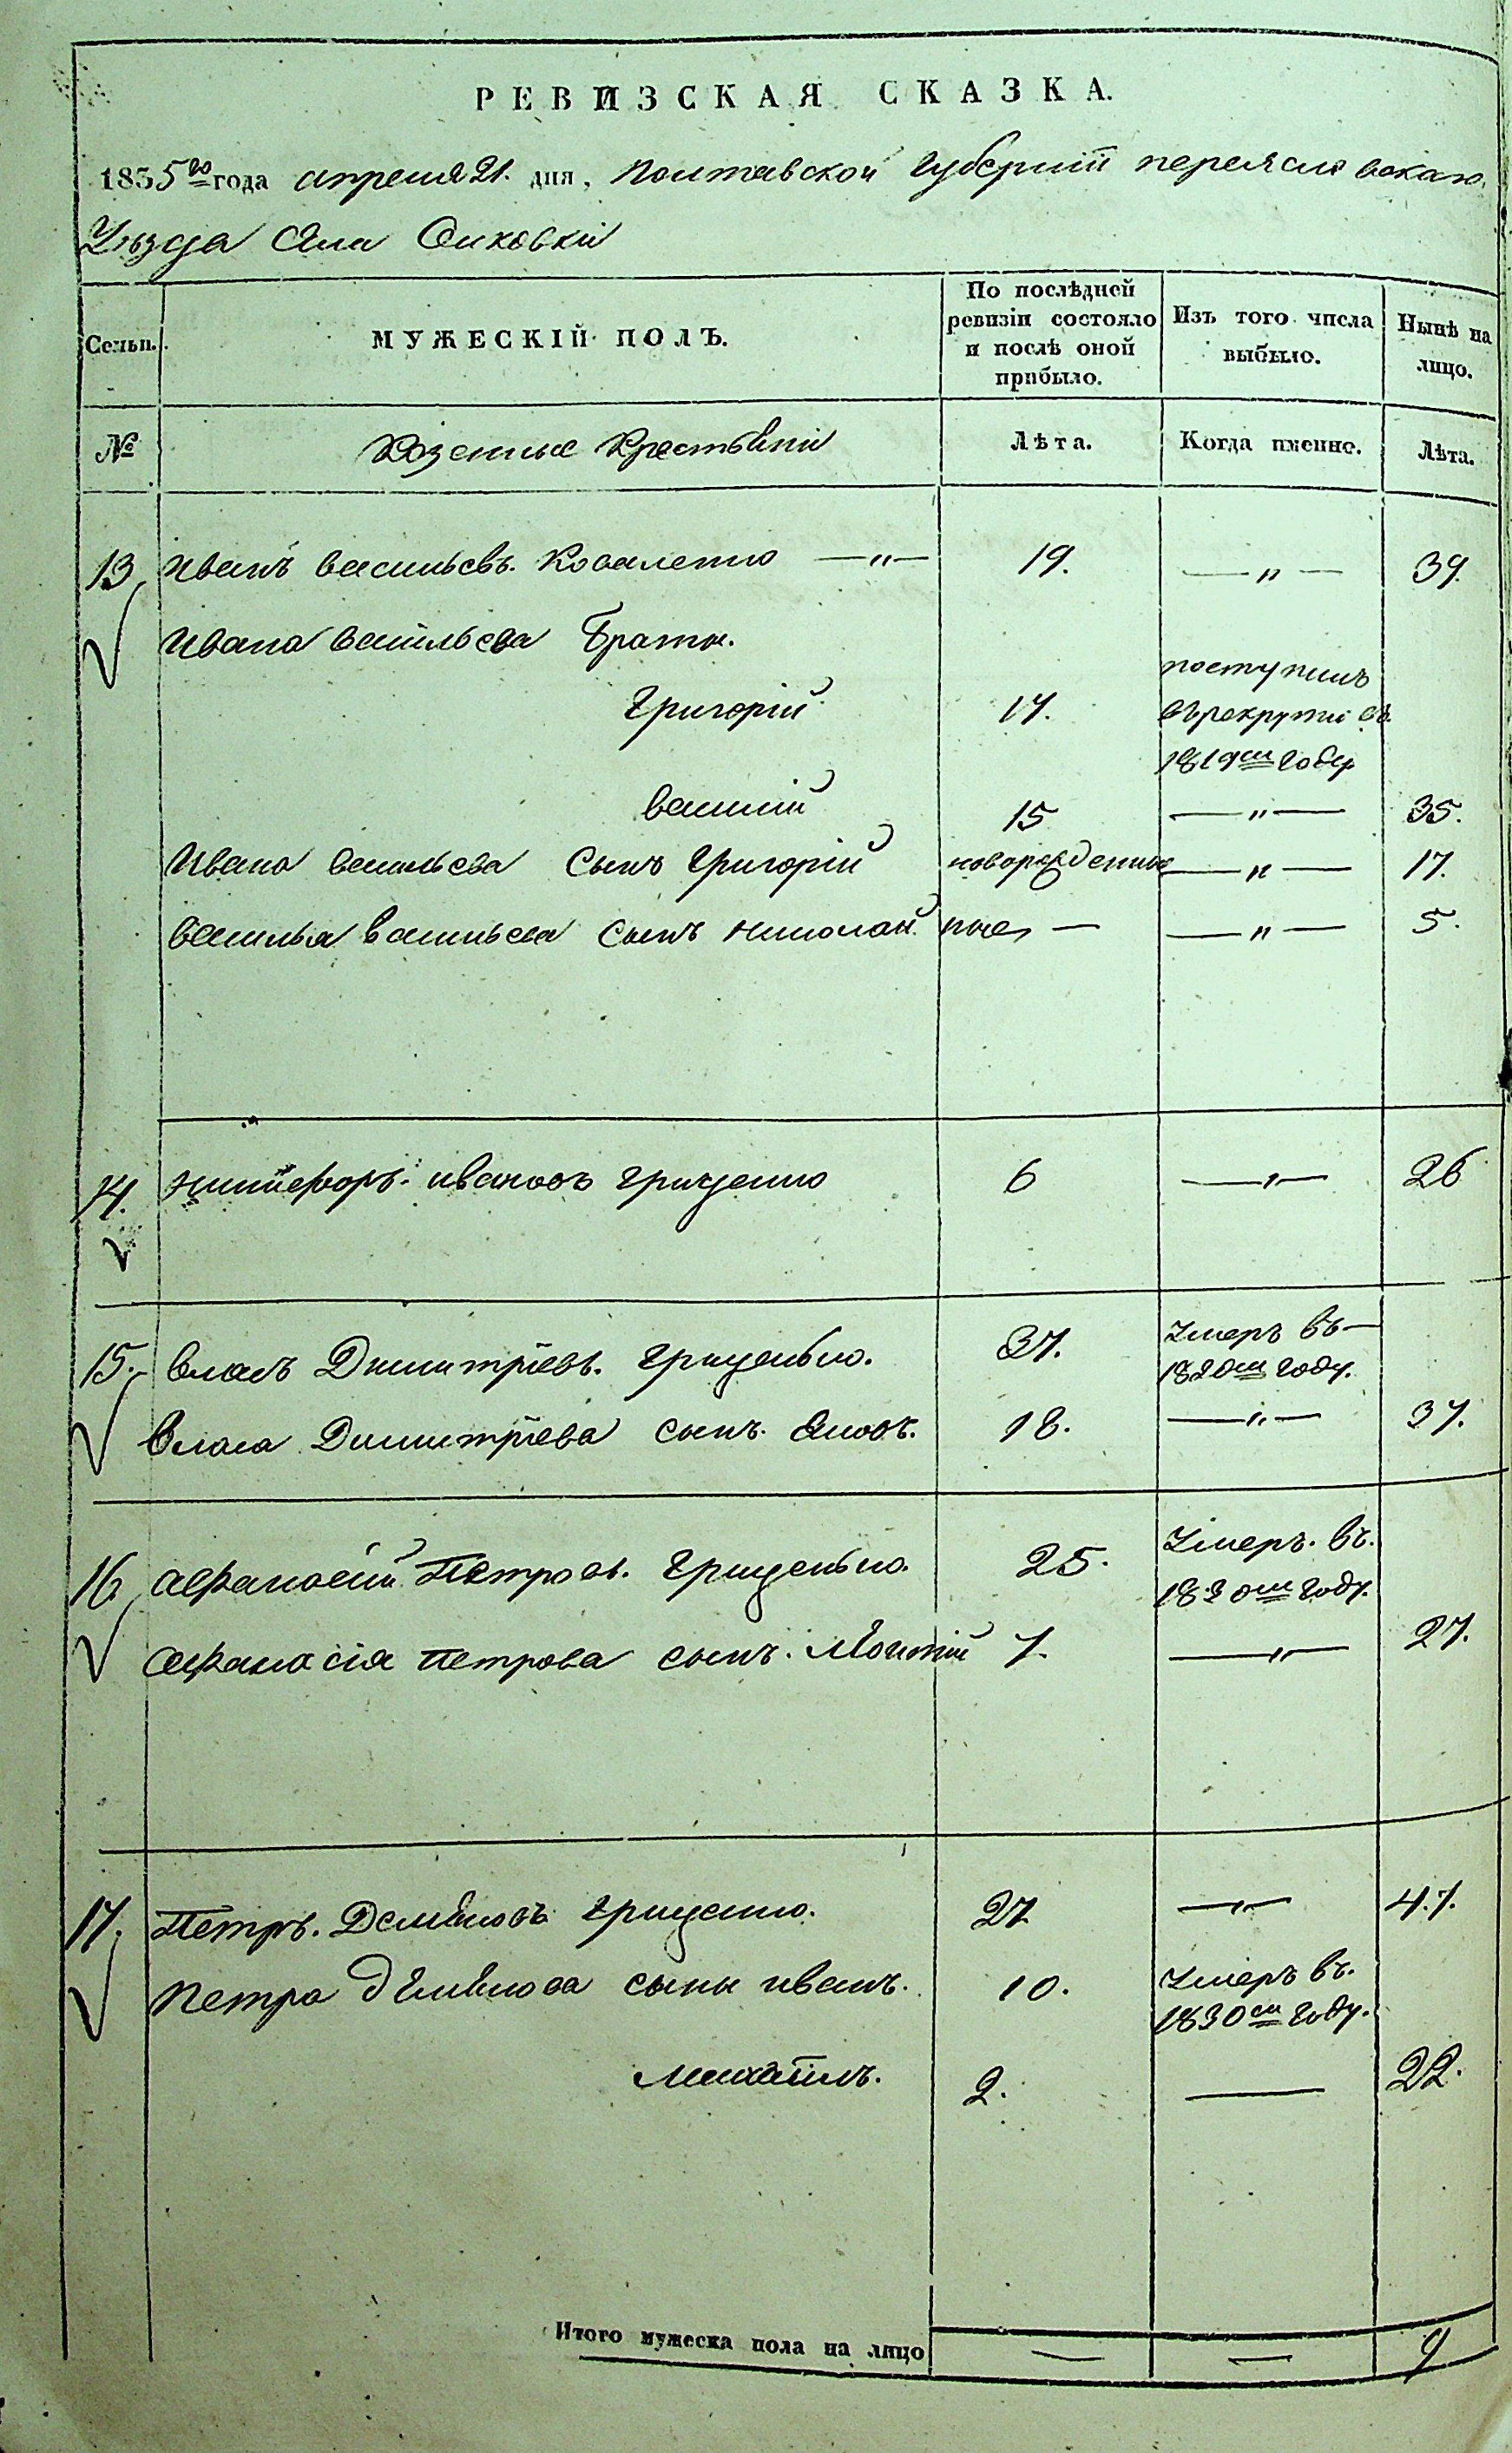 РЕВИЗСКАЯ СКАЗКА.
1835го года апреля 21. дня, Полтавской Губернiи переяславскаго
Уѣзда
Семьи. МУЖЕСКІЙ ПОЛЪ. По послѣдней ревизіи состояло и послѣ оной прибыло. Изъ того числа выбыло. Нынѣ на лицо.
№ Козенные Крестьянiи Лѣта. Когда именно. Лѣта.
13 Иванъ васильевъ. Коваленко —"— 19. —"— 39.
Ивана васильева Браты.
Григорiй 17. поступилъ въ рекруты въ 1819м году
василiй 15 —"— 35.
Ивана васильева Сынъ Григорiй новорожденные —"— 17.
василья васильева Сынъ николай — —"— 5.
14. никифоръ. ивановъ гриценко 6 —"— 26
15. власъ Димитрiевъ. гриценько. 37. Умеръ въ — 1820м году.
власа Димитрiева сынъ. Яковъ. 18. —"— 37.
16 афанасiй Петровъ. гриценько. 25. Умеръ. въ. 1820м году.
афанасiя петрова сынъ. 7. —"— 27.
17. Петръ. Демьяновъ гриценко. 27 —"— 47.
Петра демьянова сыны иванъ. 10. Умеръ въ. 1830м году.
Михайилъ. 2. — 22.
Итого мужеска пола на лицо — — 9